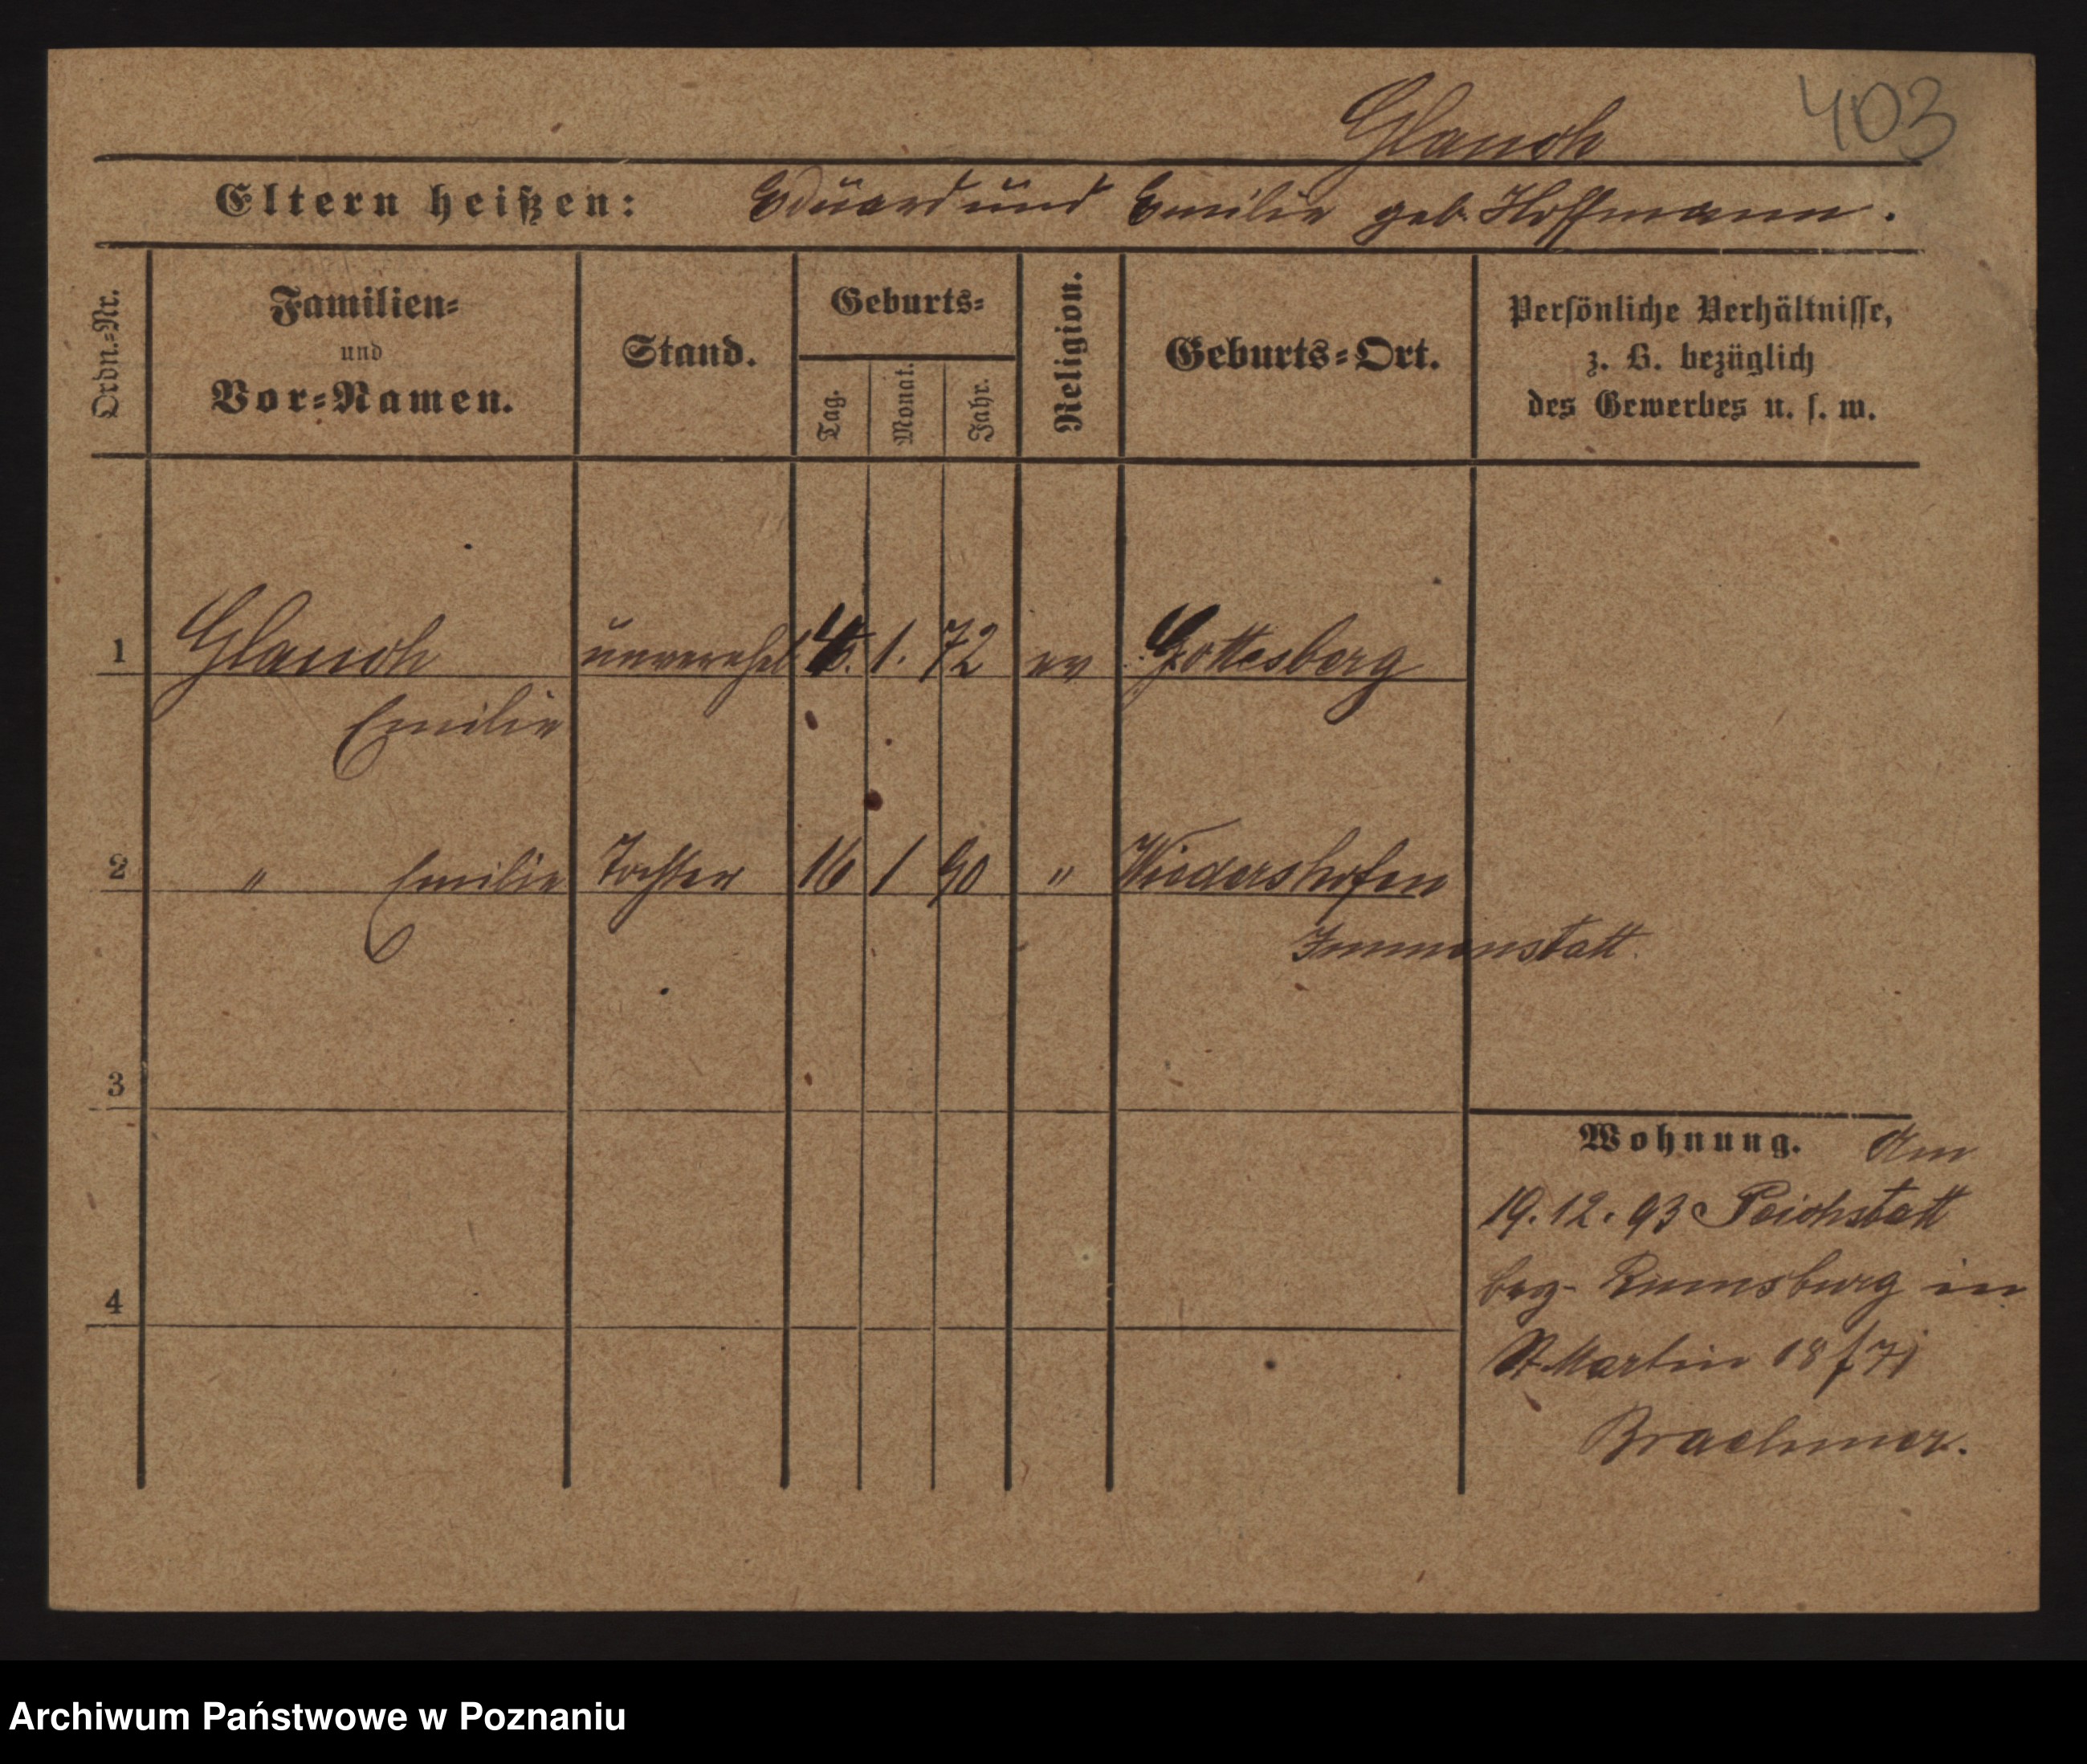 403
Glauch
Eltern heißen: Eduard und Emilie geb. Hoffmann.
Ordn.-Nr.
Familien-
und
Vor-Namen.
Stand.
Geburts-
Tag.
Monat.
Jahr.
Religion.
Geburts-Ort.
Persönliche Verhältnisse,
z. B. bezüglich
des Gewerbes u. s. w.
1 Glauch unverehel 4. 1. 72 ev Gottesberg
Emilie
2 " Emilie Tochter 16 1 90 " Wiedershofen
Immenstatt.
3
Wohnung. Am
19. 12. 93
in
4
St. Martin 18